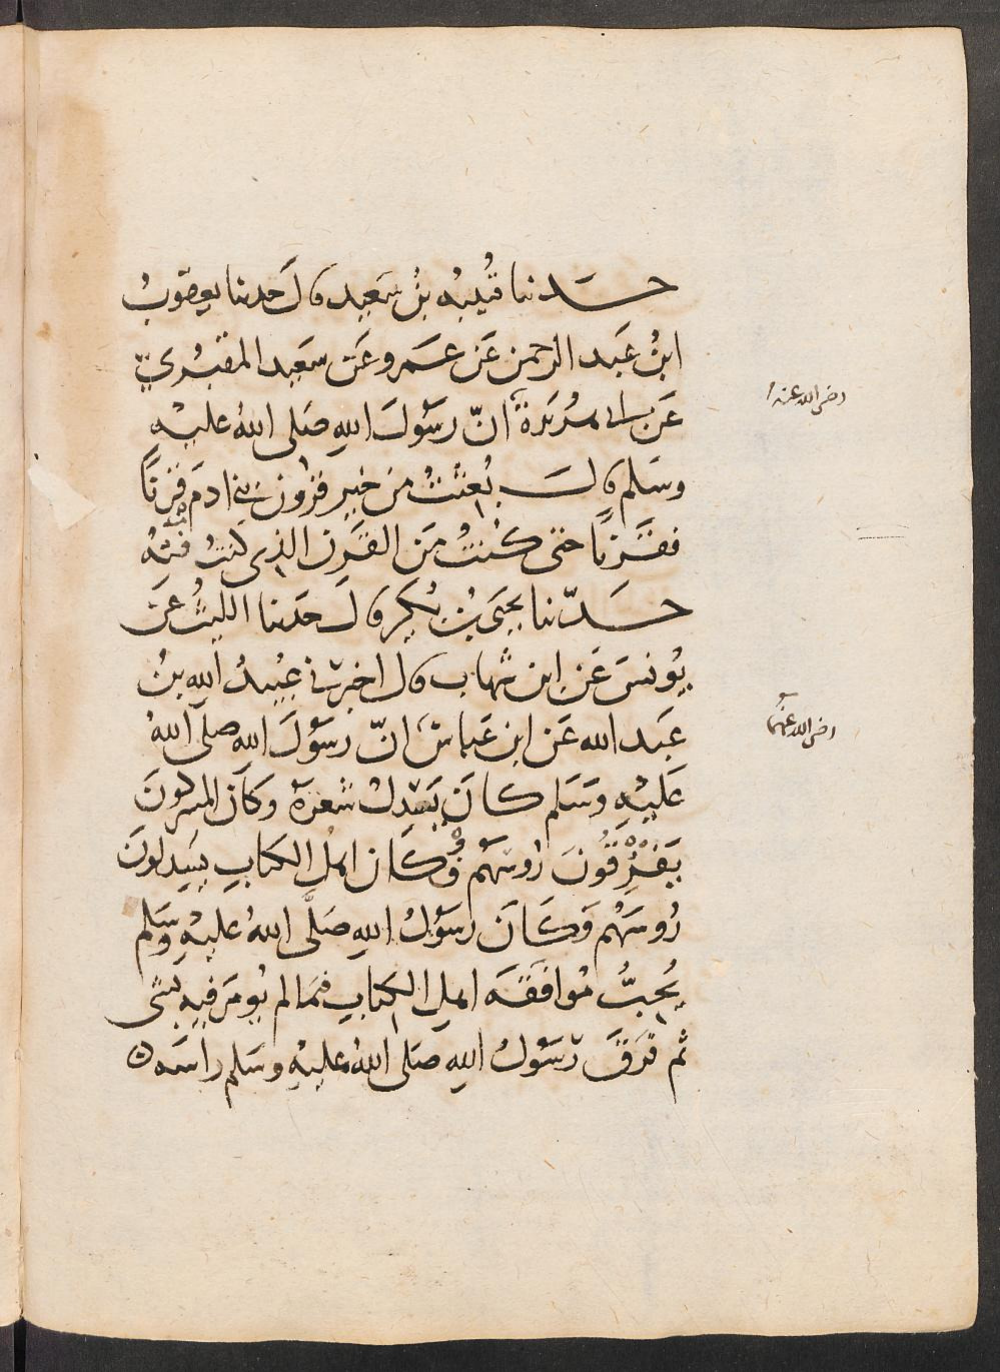 حــدثنا قُتيبةُ بنُ سَعيد قالَ حدثنا يعقوبُ
ابنُ عَبد الرحمن عَن عَمرو عَن سَعيد المقبُريّ
عَن ابى هُرَيرة انّ رَسُولَ اللهِ صَلى اللهُ عليْهِ
رضى الله عنه
وسَلم قالَ بُعِثتُ من خير قرُون بني ادمَ قرنًا
فقَرنًا حتى كُنتُ مَن القَرن الذى كنتُ فيهُ
حَـدّثنا يحيَى بن بُكير قالَ حَدثنا الليثُ عَن
يُونسَ عَن ابن شهاب قال اخبرَنى عُبيدُ الله بنُ
عَبد الله عَن ابن عَباسٍ انّ رَسُولَ الله صلَّى اللهُ
رضى الله عنهما
عَليْهِ وسَلم كانَ يَسْدِلُ شعرَهُ وكانَ المشركونَ
يَفْرِقُونَ رُوسَهُم وَكَان اهلُ الكتابِ يسَدِلونَ
رُوسَهُم وَكَانَ رسُولُ اللهِ صَلَّى اللهُ عليْهِ وسَلم
يُحِبُّ مُوافقَةَ اهلِ الكتابِ فيمَا لم يُومَر فيهِ بشى
ثم فَرَقَ رَسُولُ اللهِ صَلى اللهُ عليْهِ وسَلم راسَه ه